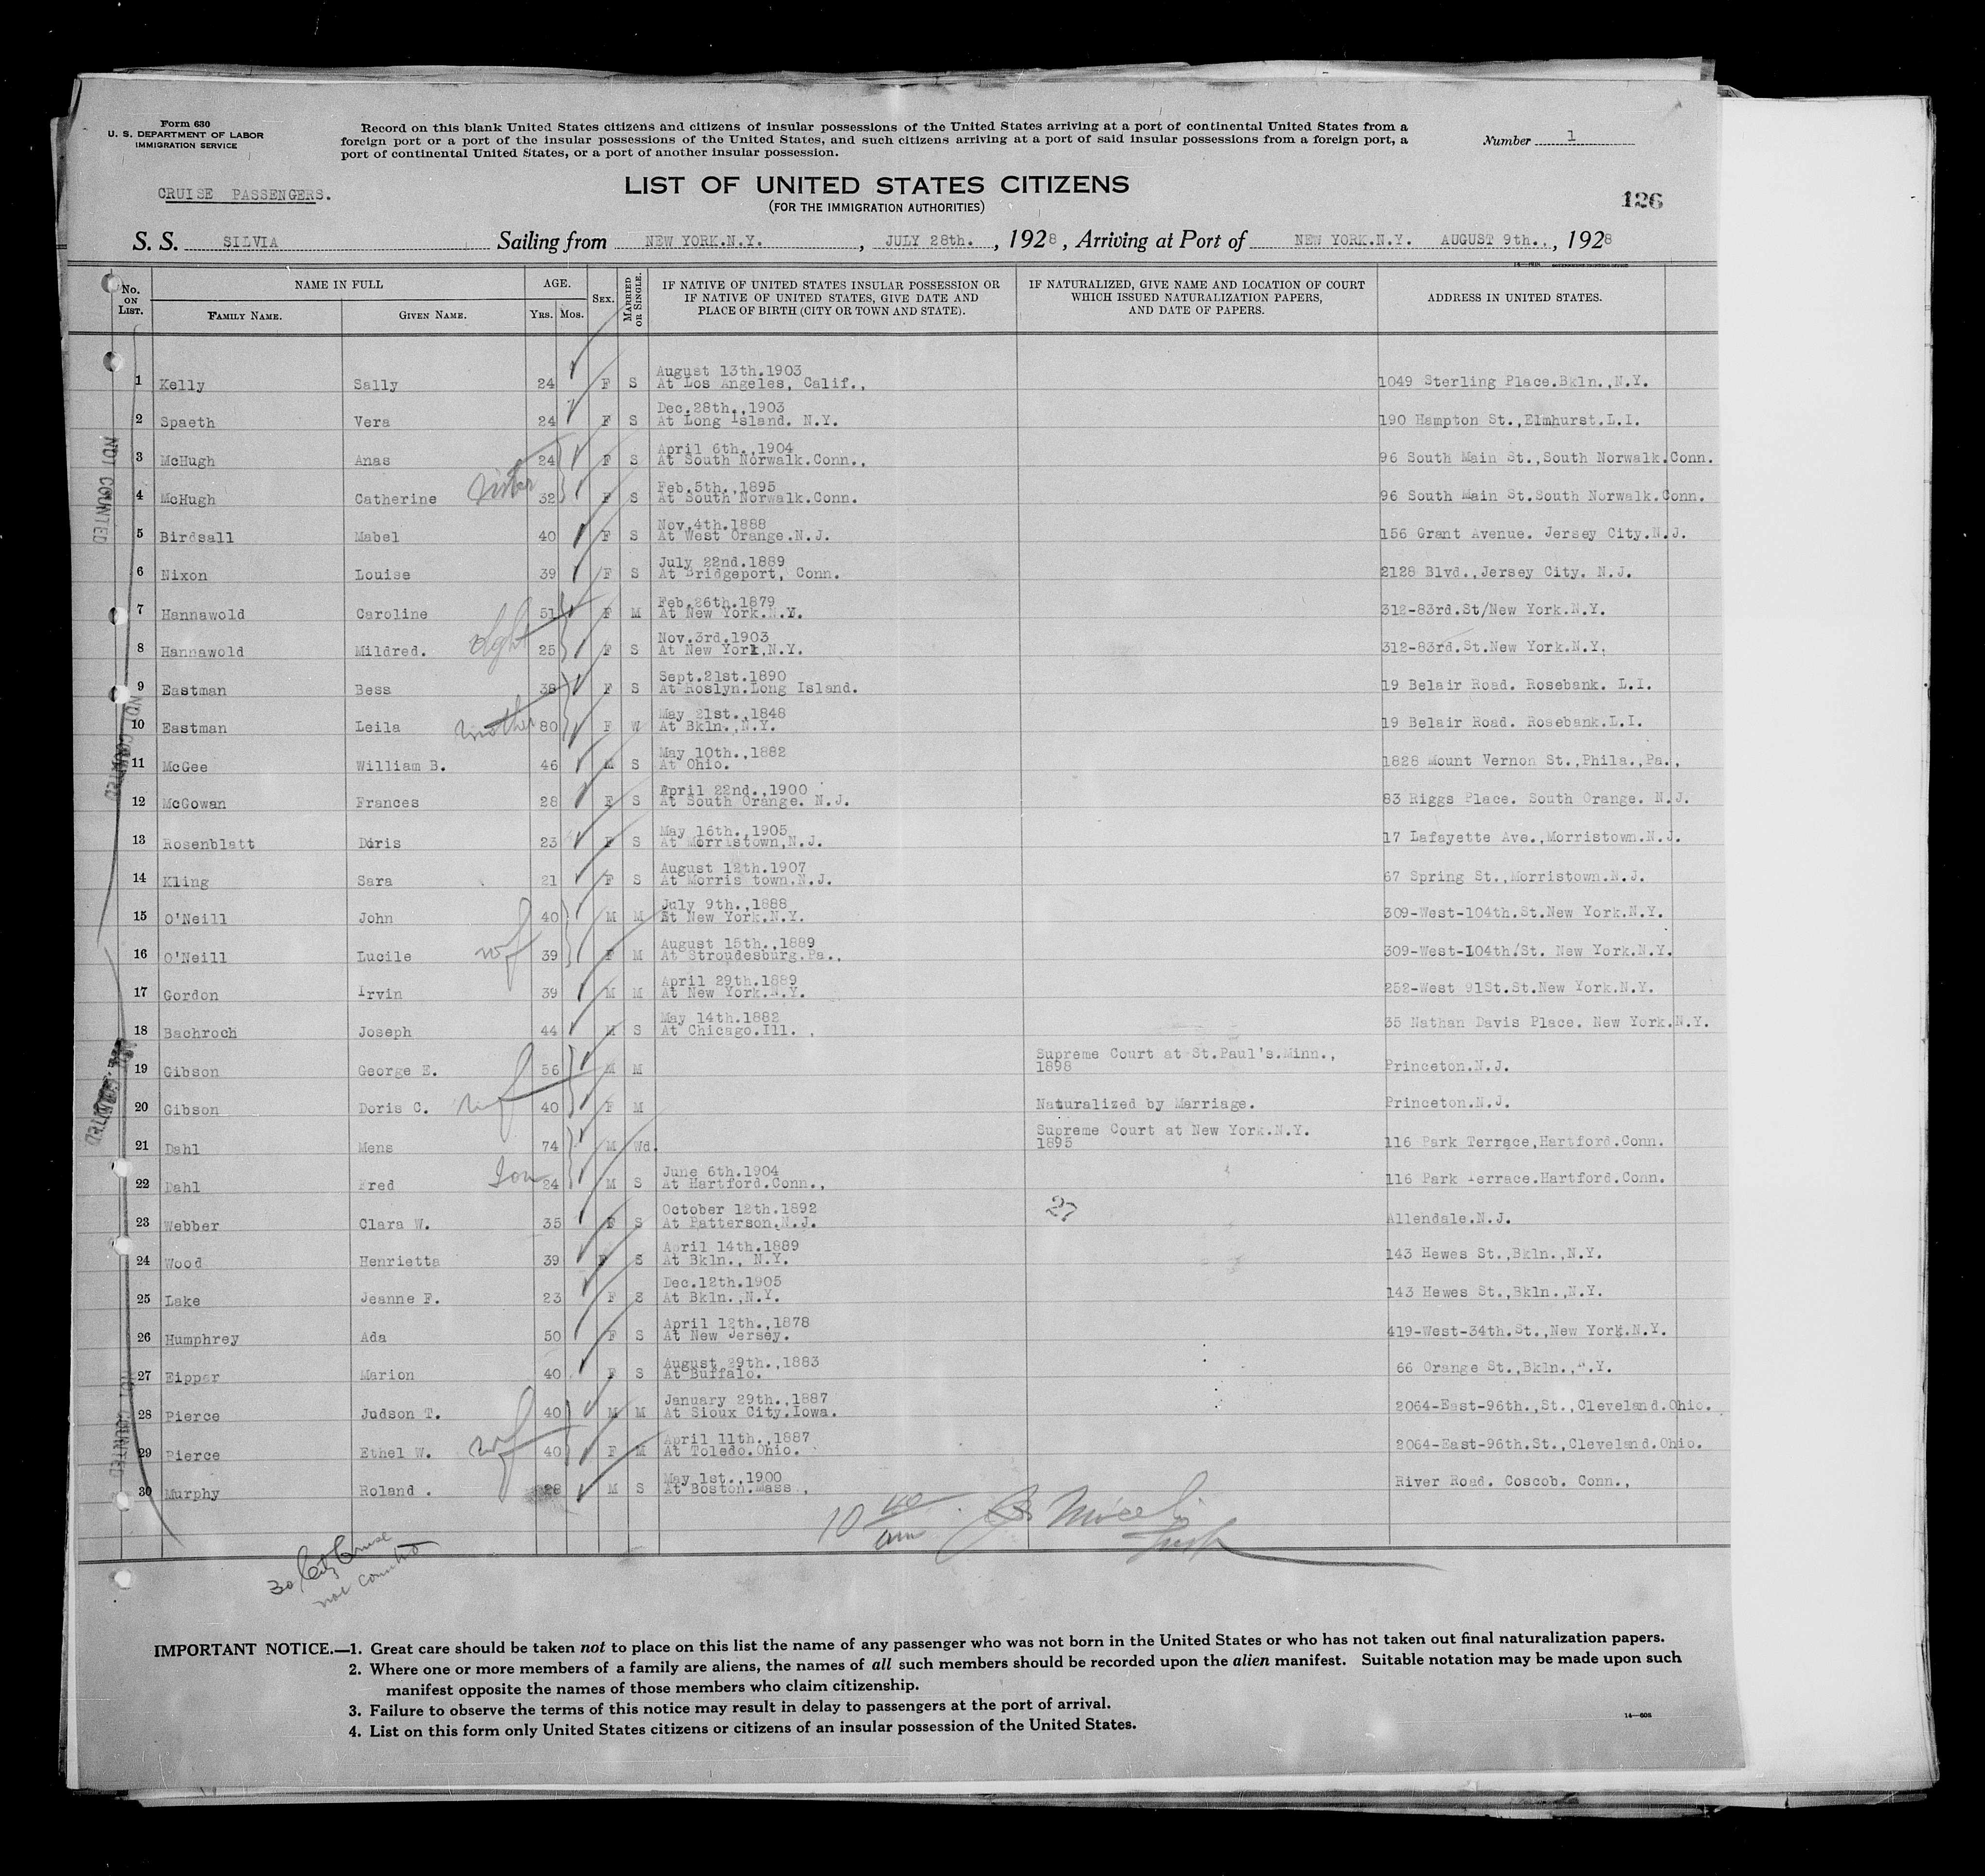 Form 630
U. S. DEPARTMENT OF LABOR
IMMIGRATION SERVICE
Record on this blank United States citizens and citizens of insular possessions of the United States arriving at a port of continental United States from a
foreign port or a port of the insular possessions of the United States, and such citizens arriving at a port of said insular possessions from a foreign port, a
port of continental United States, or a port of another insular possession.
Number 1
CRUISE PASSENGERS.
LIST OF UNITED STATES CITIZENS
(FOR THE IMMIGRATION AUTHORITIES)
126
S. S. SILVIA Sailing from NEW YORK.N.Y. , JULY 28th. , 1928 , Arriving at Port of NEW YORK.N.Y. AUGUST 9th.. , 1928
No. ON LIST. NAME IN FULL FAMILY NAME. GIVEN NAME. AGE. YRS. MOS. SEX. MARRIED OR SINGLE. IF NATIVE OF UNITED STATES INSULAR POSSESSION OR IF NATIVE OF UNITED STATES, GIVE DATE AND PLACE OF BIRTH (CITY OR TOWN AND STATE). IF NATURALIZED, GIVE NAME AND LOCATION OF COURT WHICH ISSUED NATURALIZATION PAPERS, AND DATE OF PAPERS. ADDRESS IN UNITED STATES.
1 Kelly Sally 24 F S August 13th.1903 At Los Angeles, Calif., 1049 Sterling Place.Bkln.,N.Y.
2 Spaeth Vera 24 F S Dec.28th.,1903 At Long Island. N.Y. 190 Hampton St.,Elmhurst.L.I.
3 McHugh Anas 24 F S April 6th.,1904 At South Norwalk.Conn., 96 South Main St.,South Norwalk.Conn.
4 McHugh Catherine sister 32 F S Feb.5th.,1895 At South Norwalk.Conn. 96 South Main St.South Norwalk.Conn.
5 Birdsall Mabel 40 F S Nov.4th.1888 At West Orange.N.J. 156 Grant Avenue. Jersey City.N.J.
6 Nixon Louise 39 F S July 22nd.1889 At Bridgeport, Conn. 2128 Blvd.,Jersey City. N.J.
7 Hannawold Caroline 51 F M Feb.26th.1879 At New York.N.Y. 312-83rd.St/New York.N.Y.
8 Hannawold Mildred. dght 25 F S Nov.3rd.1903 At New York.N.Y. 312-83rd.St.New York.N.Y.
9 Eastman Bess 38 F S Sept.21st.1890 At Roslyn.Long Island. 19 Belair Road. Rosebank. L.I.
10 Eastman Leila mother 80 F W May 21st.,1848 At Bkln.,N.Y. 19 Belair Road. Rosebank.L.I.
11 McGee William B. 46 M S May 10th.,1882 At Ohio. 1828 Mount Vernon St.,Phila.,Pa.,
12 McGowan Frances 28 F S April 22nd.,1900 At South Orange. N.J. 83 Riggs Place. South Orange. N.J.
13 Rosenblatt Doris 23 F S May 16th.,1905 At Morristown,N.J. 17 Lafayette Ave.,Morristown.N.J.
14 Kling Sara 21 F S August 12th.1907 At Morris town.N.J. 67 Spring St.,Morristown.N.J.
15 O'Neill John 40 M M July 9th.,1888 At New York.N.Y. 309-West-104th.St.New York.N.Y.
16 O'Neill Lucile wf 39 F M August 15th.,1889 At Stroudesburg.Pa., 309-West-104th/St. New York.N.Y.
17 Gordon Irvin 39 M M April 29th.1889 At New York.N.Y. 252-West 91St.St.New York.N.Y.
18 Bachroch Joseph 44 M S May 14th.1882 At Chicago.Ill. , 35 Nathan Davis Place. New York.N.Y.
19 Gibson George E. 56 M M Supreme Court at St.Paul's.Minn., 1898 Princeton.N.J.
20 Gibson Doris C. wf 40 F M Naturalized by Marriage. Princeton.N.J.
21 Dahl Mens 74 M Wd. Supreme Court at New York.N.Y. 1895 116 Park Terrace,Hartford.Conn.
22 Dahl Fred Son 24 M S June 6th.1904 At Hartford.Conn., 116 Park Terrace.Hartford.Conn.
23 Webber Clara W. 35 F S October 12th.1892 At Patterson.N.J. 27 Allendale.N.J.
24 Wood Henrietta 39 F S April 14th.1889 At Bkln., N.Y. 143 Hewes St.,Bkln.,N.Y.
25 Lake Jeanne F. 23 F S Dec.12th.1905 At Bkln.,N.Y. 143 Hewes St.,Bkln.,N.Y.
26 Humphrey Ada 50 F S April 12th.,1878 At New Jersey. 419-West-34th.St.,New York.N.Y.
27 Eipper Marion 40 F S August 29th.,1883 At Buffalo. 66 Orange St.,Bkln.,N.Y.
28 Pierce Judson T. 40 M M January 29th.,1887 At Sioux City.Iowa. 2064-East-96th.,St.,Cleveland.Ohio.
29 Pierce Ethel W. wf 40 F M April 11th.,1887 At Toledo.Ohio. 2064-East-96th.St.,Cleveland.Ohio.
30 Murphy Roland . 28 M S May 1st.,1900 At Boston.Mass., River Road. Coscob. Conn.,
NOT COUNTED
NOT COUNTED
NOT COUNTED
NOT COUNTED
10 40 am
Insp
30 Citz Cruise
not counted
IMPORTANT NOTICE.—1. Great care should be taken not to place on this list the name of any passenger who was not born in the United States or who has not taken out final naturalization papers.
2. Where one or more members of a family are aliens, the names of all such members should be recorded upon the alien manifest. Suitable notation may be made upon such
manifest opposite the names of those members who claim citizenship.
3. Failure to observe the terms of this notice may result in delay to passengers at the port of arrival.
4. List on this form only United States citizens or citizens of an insular possession of the United States.
14—608